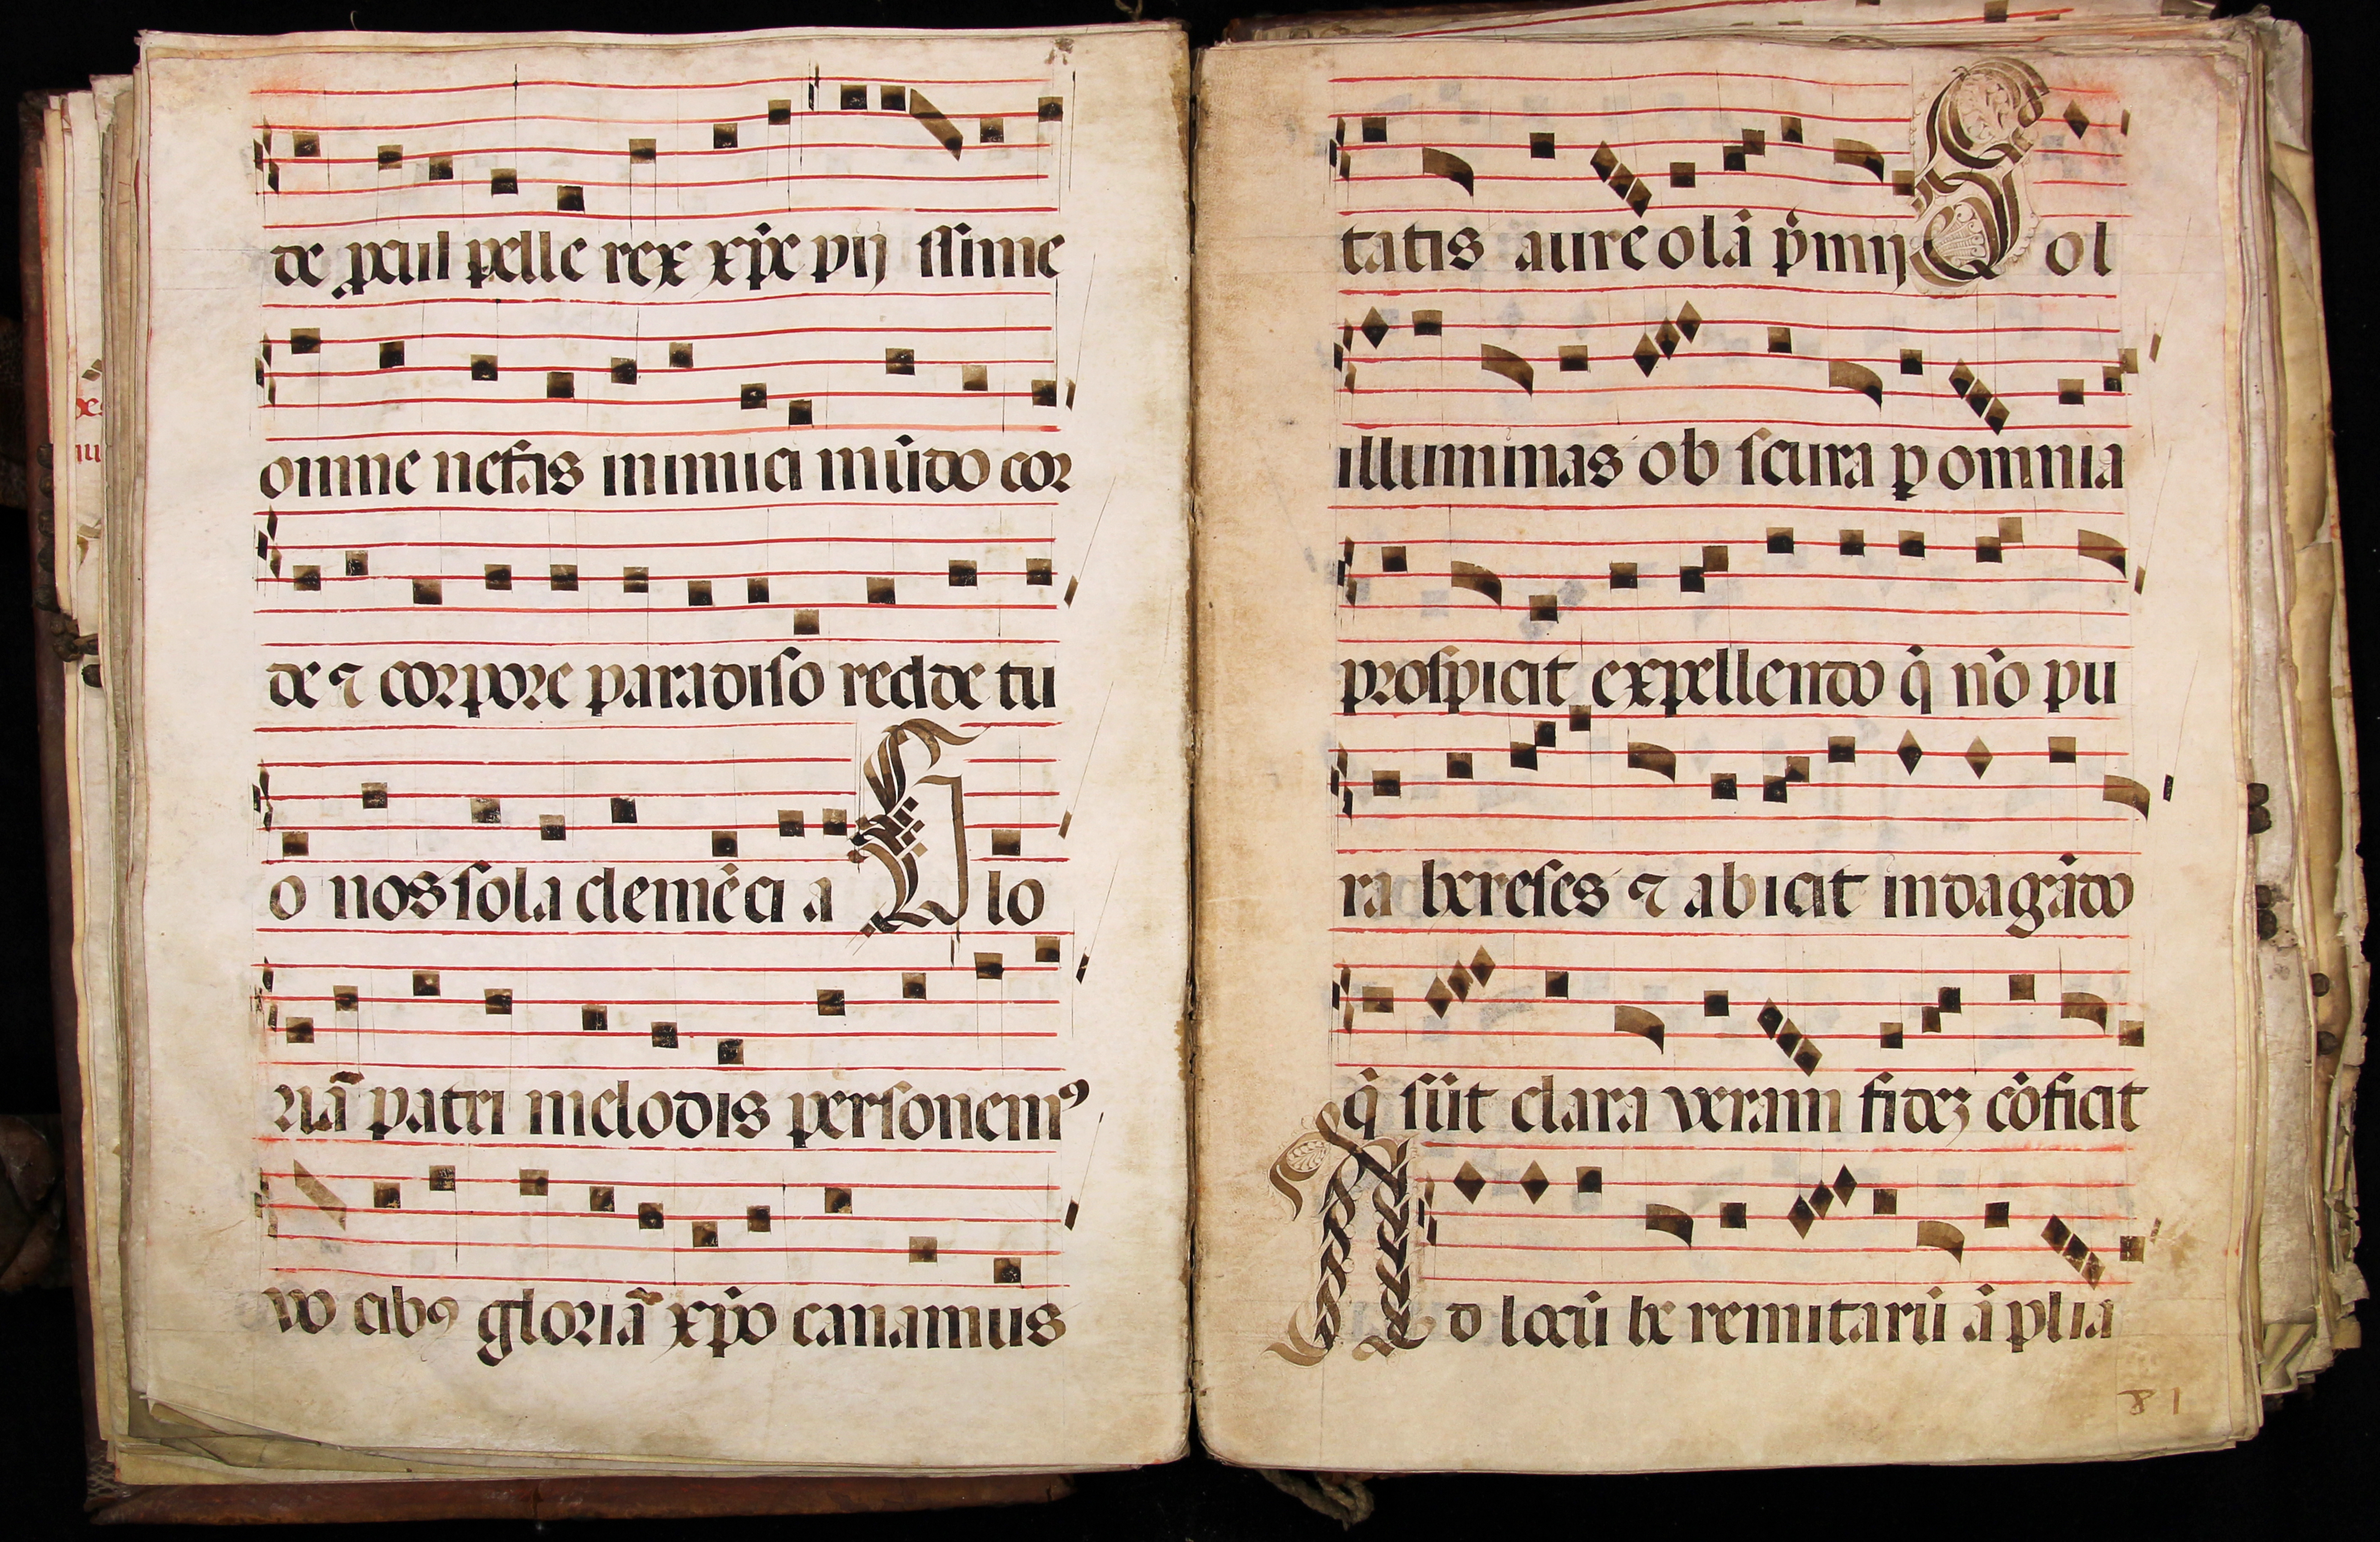 de ꝓcul pelle rex xp̄e pij issime
omne nefas inimici mūdo cor
de ⁊ corpore paradiso redde tu
o nos sola clemēci a Glo
riā patri melodis personemꝰ
vo cibꝰ gloriā xp̄o canamus
tatis aureolā p̄mij Sol
illuminas ob scura ꝑ omnia
prospicit expellendo q̄ nō pu
ra hereses ⁊ abicit indagādo
q̄ sūt clara veram fidez cōficit
Ad locū he remitarū āplia
81